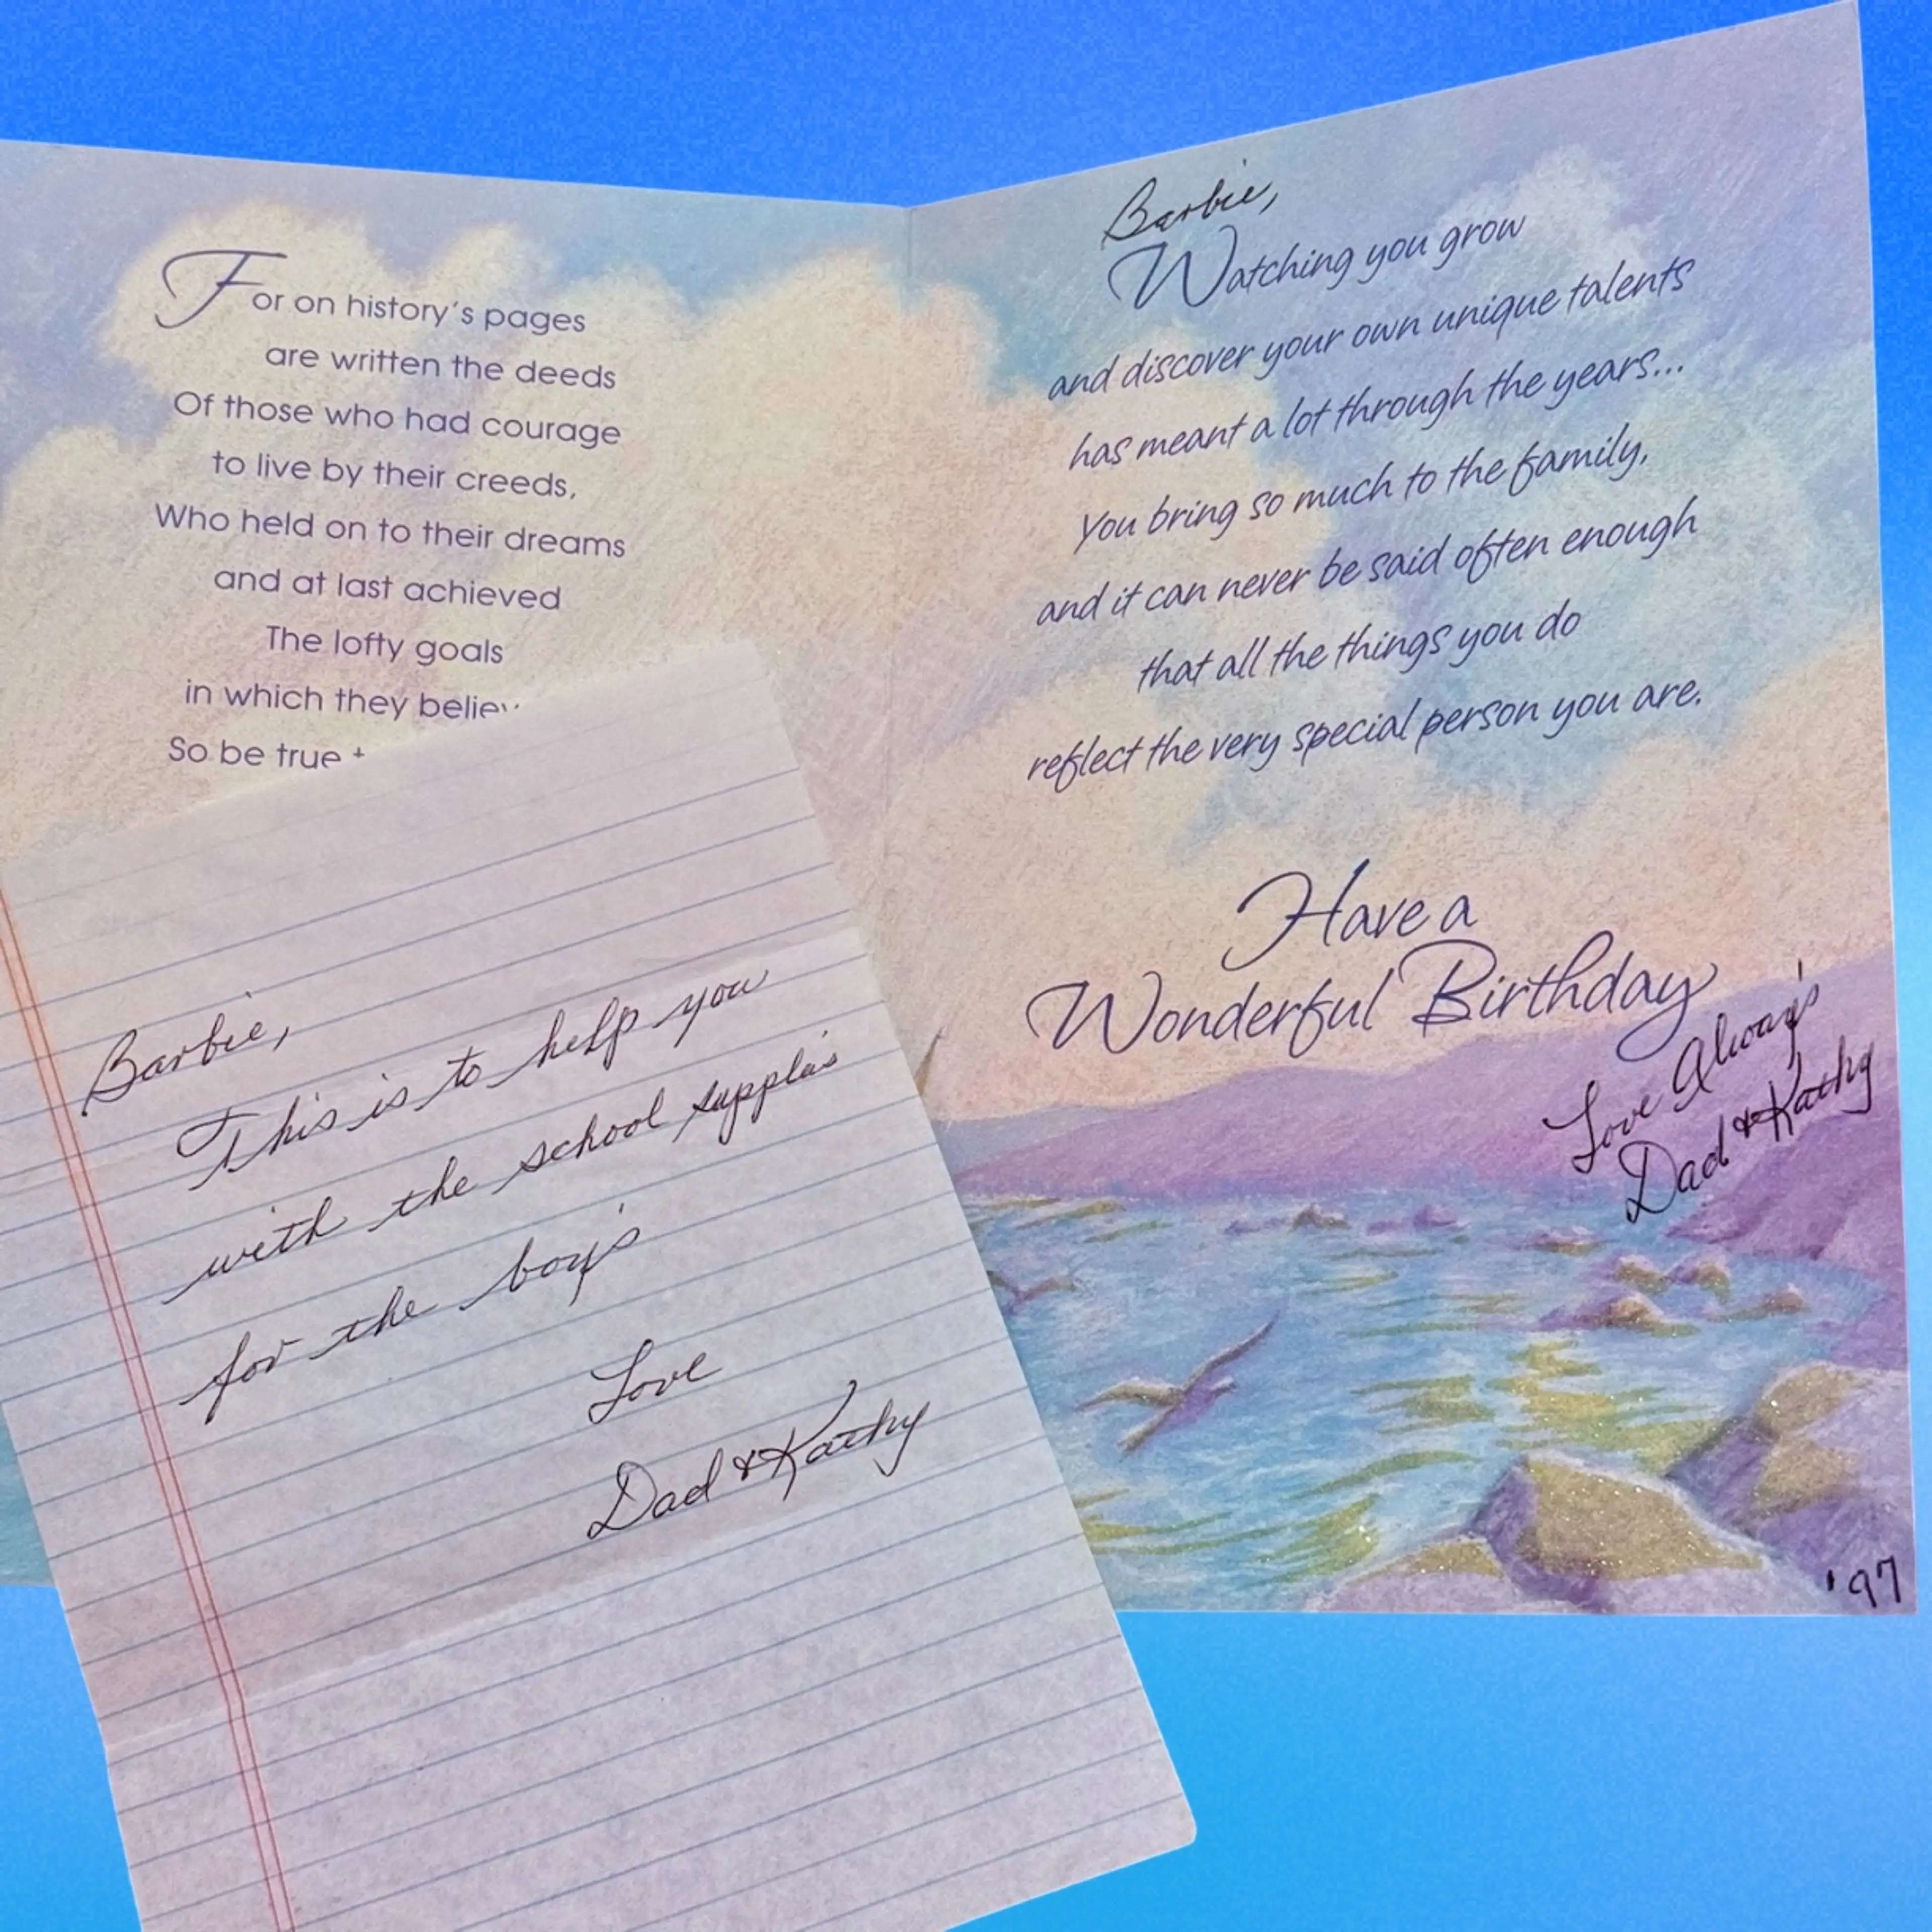 For on history's pages
are written the deeds
Of those who had courage
to live by their creeds,
Who held on to their dreams
and at last achieved
The lofty goals
in which they
So be true
Barbie,
Watching you grow
and discover your own unique talents
has meant a lot through the years...
You bring so much to the family,
and it can never be said often enough
that all the things you do
reflect the very special person you are.
Have a
Wonderful Birthday
Love Alway's
Dad & Kathy
'97
Barbie,
This is to help you
with the school supplie's
for the boy's
Love
Dad & Kathy